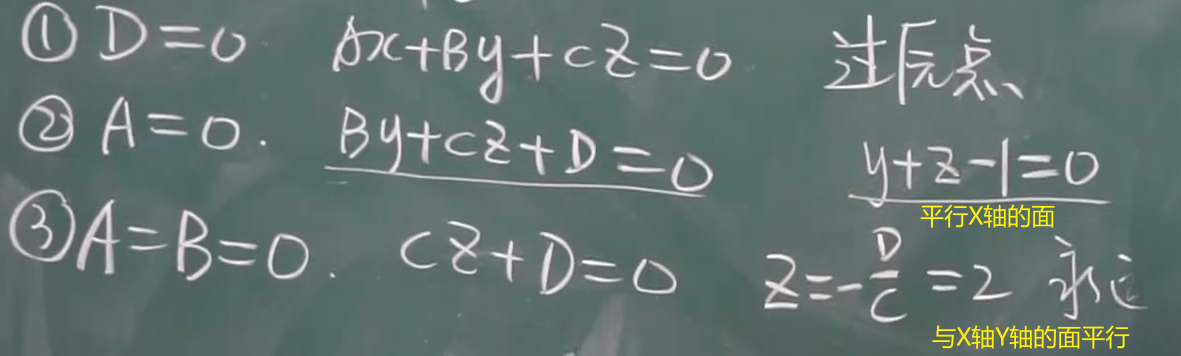 ① D=0 Ax+By+CZ=0 过原点
② A=0. By+CZ+D=0 y+z-1=0
平行X轴的面
③ A=B=0. CZ+D=0 Z=-D/C=2 永远
与X轴Y轴的面平行